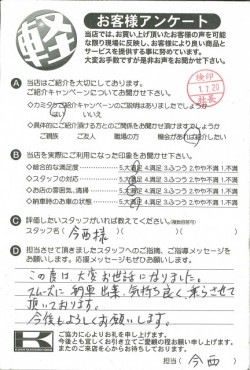 軽
お客様アンケート
当店では、お買い上げ頂いたお客様の声を可能
な限り現場に反映し、お客様により良い商品と
サービスを提供する事に努めています。
大変お手数ですが是非お声をお聞かせ下さい。
検印
1.7.20
A 当店はご紹介を大切にしております。
ご紹介キャンペーンについてお聞かせ下さい。
はい いいえ
ご親族 ご友人 職場の方
B 当店を実際にご利用になった印象をお聞かせ下さい。
◇総合的な満足度 5.大満足 4.満足 3.ふつう 2.やや不満 1.不満
◇スタッフの対応 5.大満足 4.満足 3.ふつう 2.やや不満 1.不満
◇お店の雰囲気、清掃 5.大満足 4.満足 3.ふつう 2.やや不満 1.不満
◇納車時のお車の状態 5.大満足 4.満足 3.ふつう 2.やや不満 1.不満
C 評価したいスタッフがいれば教えてください。
スタッフ名( 今西様 )
D 担当させて頂きましたスタッフへのご指摘、ご指導メッセージを
お願いします。応援メッセージもぜひお願い致します。
この度は、大変お世話になりました。
スムーズに納車出来、気持ち良く乗らさせて
頂いております。
今後もよろしくお願いします。
K
ご協力に心よりお礼を申し上げます。
今後とも宜しくお引き立てご愛顧の程お願い申し上げます。
またのご来店を心からお待ちしております。
担当( 今西 )